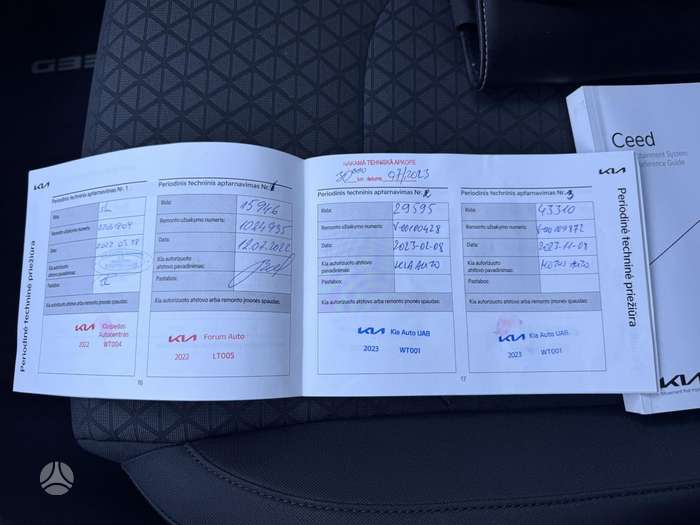 KIA
Periodinė techninė priežiūra
Periodinis techninis aptarnavimas Nr. 1
Rida:
Remonto užsakymo numeris:
Data:
Kia autorizuoto
atstovo pavadinimas:
Pastabos:
Kia autorizuoto atstovo arba remonto įmonės spaudas:
KIA Klaipėdos
Autocentras
2022 WT004
Periodinis techninis aptarnavimas Nr.
Rida:
15946
Remonto užsakymo numeris:
1024935
Data:
12.07.2022
Kia autorizuoto
atstovo pavadinimas:
Pastabos:
Kia autorizuoto atstovo arba remonto įmonės spaudas:
KIA Forum Auto
2022 LT005
16
NĀKAMĀ TEHNISKĀ APKOPE
30 000 km datums 07/2023
Periodinis techninis aptarnavimas Nr. 2
Rida:
29595
Remonto užsakymo numeris:
V-00100428
Data:
2023-02-08
Kia autorizuoto
atstovo pavadinimas:
KIA AUTO
Pastabos:
Kia autorizuoto atstovo arba remonto įmonės spaudas:
KIA Kia Auto UAB
2023 WT001
17
Periodinis techninis aptarnavimas Nr. 3
Rida:
43310
Remonto užsakymo numeris:
V-00109872
Data:
2023-11-08
Kia autorizuoto
atstovo pavadinimas:
Pastabos:
Kia autorizuoto atstovo arba remonto įmonės spaudas:
KIA Kia Auto UAB
2023 WT001
KIA
Periodinė techninė priežiūra
Ceed
System
Reference Guide
KIA